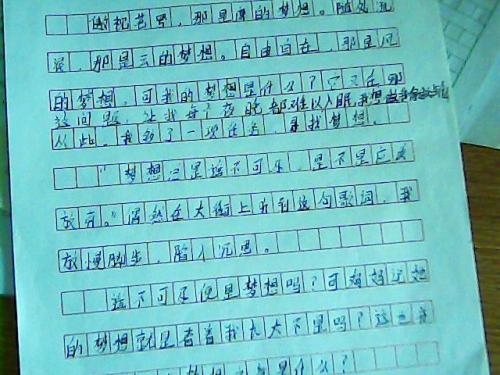 傲视苍穹，那是鹰的梦想。随处流
浪，那是云的梦想。自由自在，那是风
的梦想，可我的梦想是什么？它又在哪
这问题，让我每个夜晚都难以入眠，我想
从此，我到了一现在去，寻找梦想。
“梦想总是遥不可及，是不是应该
放弃。”偶然在大街上听到这句歌词，我
放慢脚步，陷入沉思。
遥不可及便是梦想吗？可妈妈说她
的梦想就是看着我长大不是吗？这也
梦想 是什么？